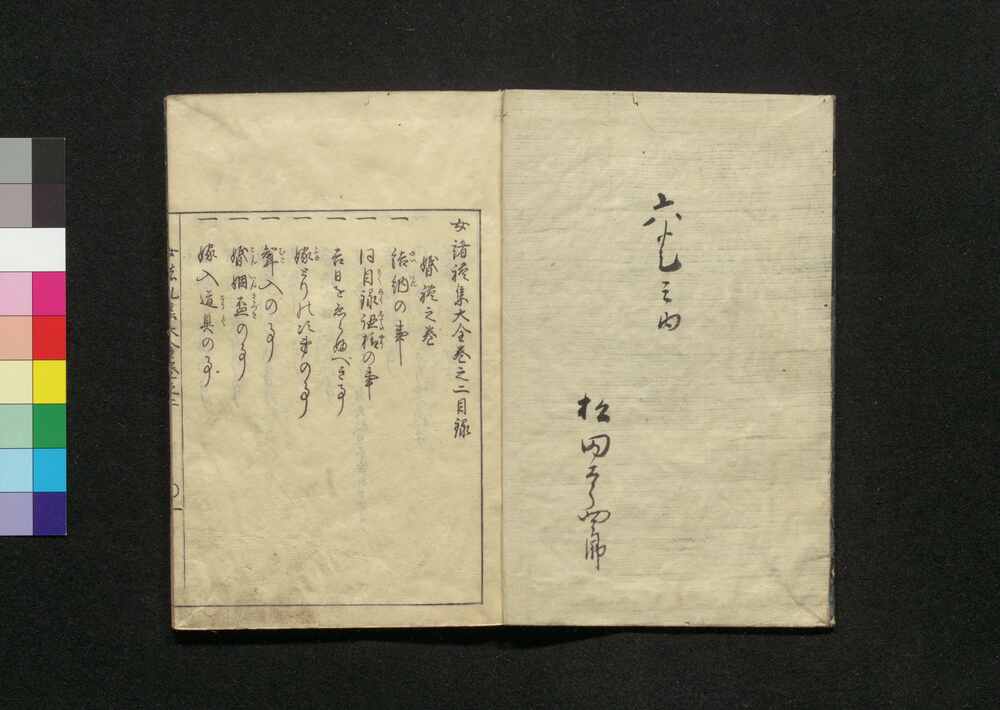 六冊之内
松田
女諸禮集大全巻之二目録
婚禮之巻
一 結納の事
一 同目録認様の事
一 吉日をゑらぶべき事
一 嫁とりの次第の事
一 聟入の事
一 婚姻盃の事
一 嫁入道具の事